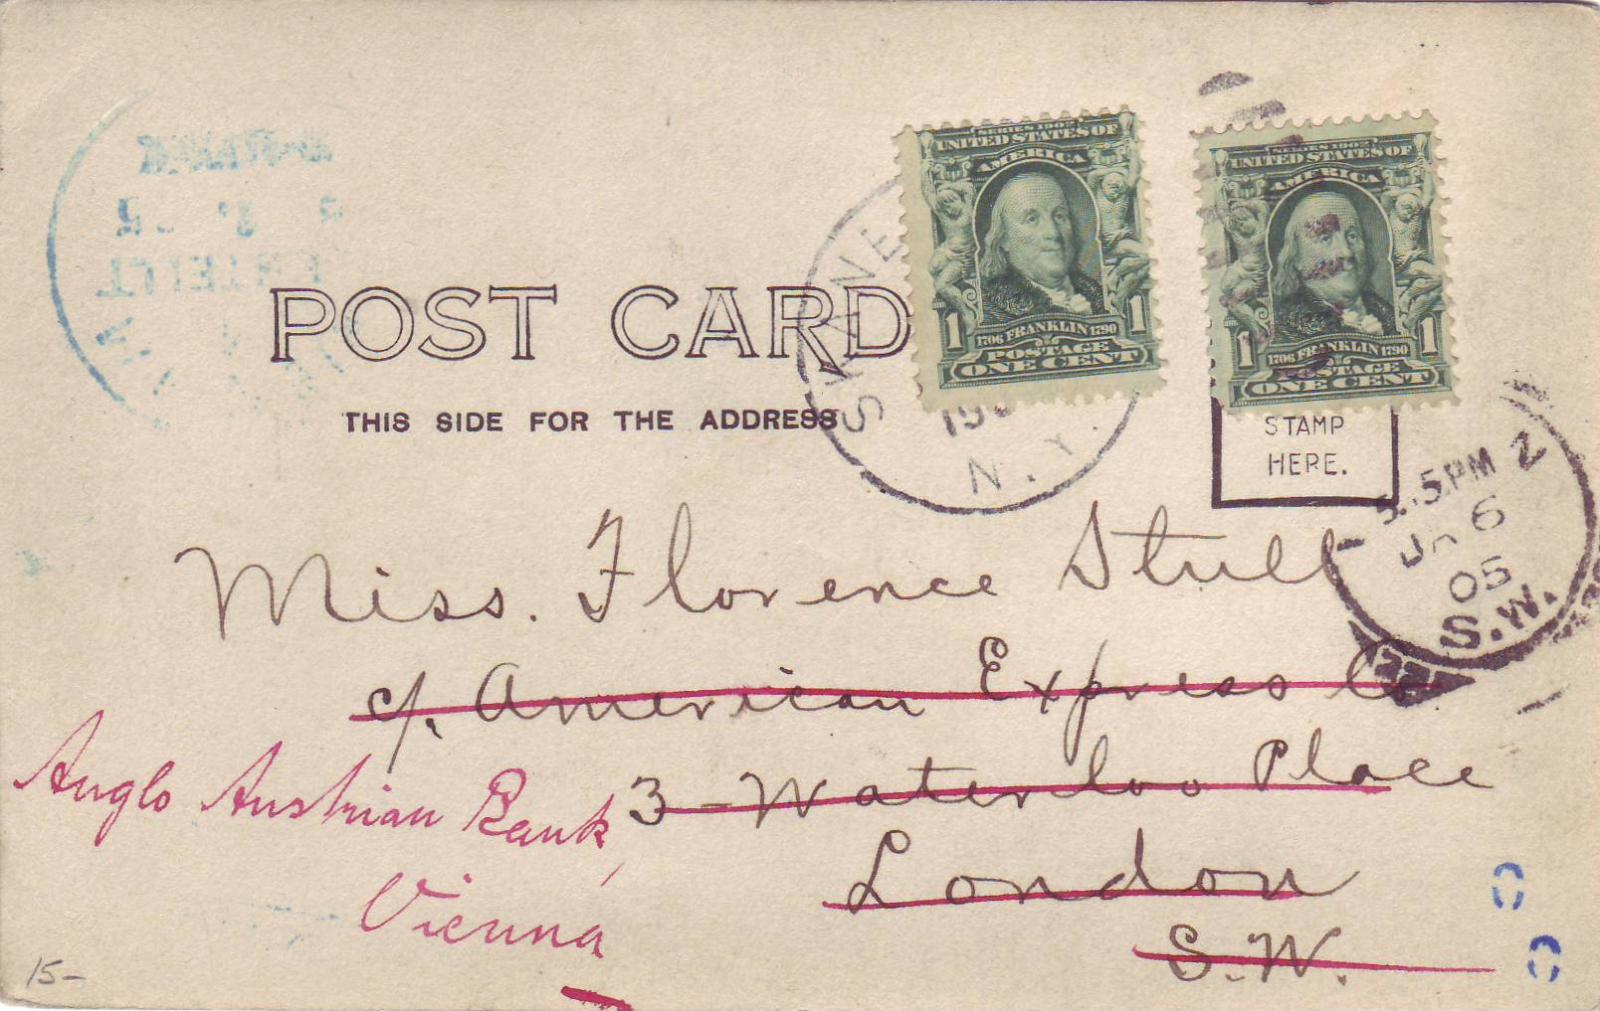 SERIES 1902
UNITED STATES OF
AMERICA
1 1
1706 FRANKLIN 1790
POSTAGE
ONE CENT
SERIES 1902
UNITED STATES OF
AMERICA
1 1
1706 FRANKLIN 1790
POSTAGE
ONE CENT
POST CARD
THIS SIDE FOR THE ADDRESS
STAMP
HERE.
SKANE
N.Y.
5PM 2
JA 6
05
S.W.
Miss. Florence Stull
c/. American Express Co
3-Waterloo Place
London
S.W.
Anglo Austrian Bank,
Vienna
15-